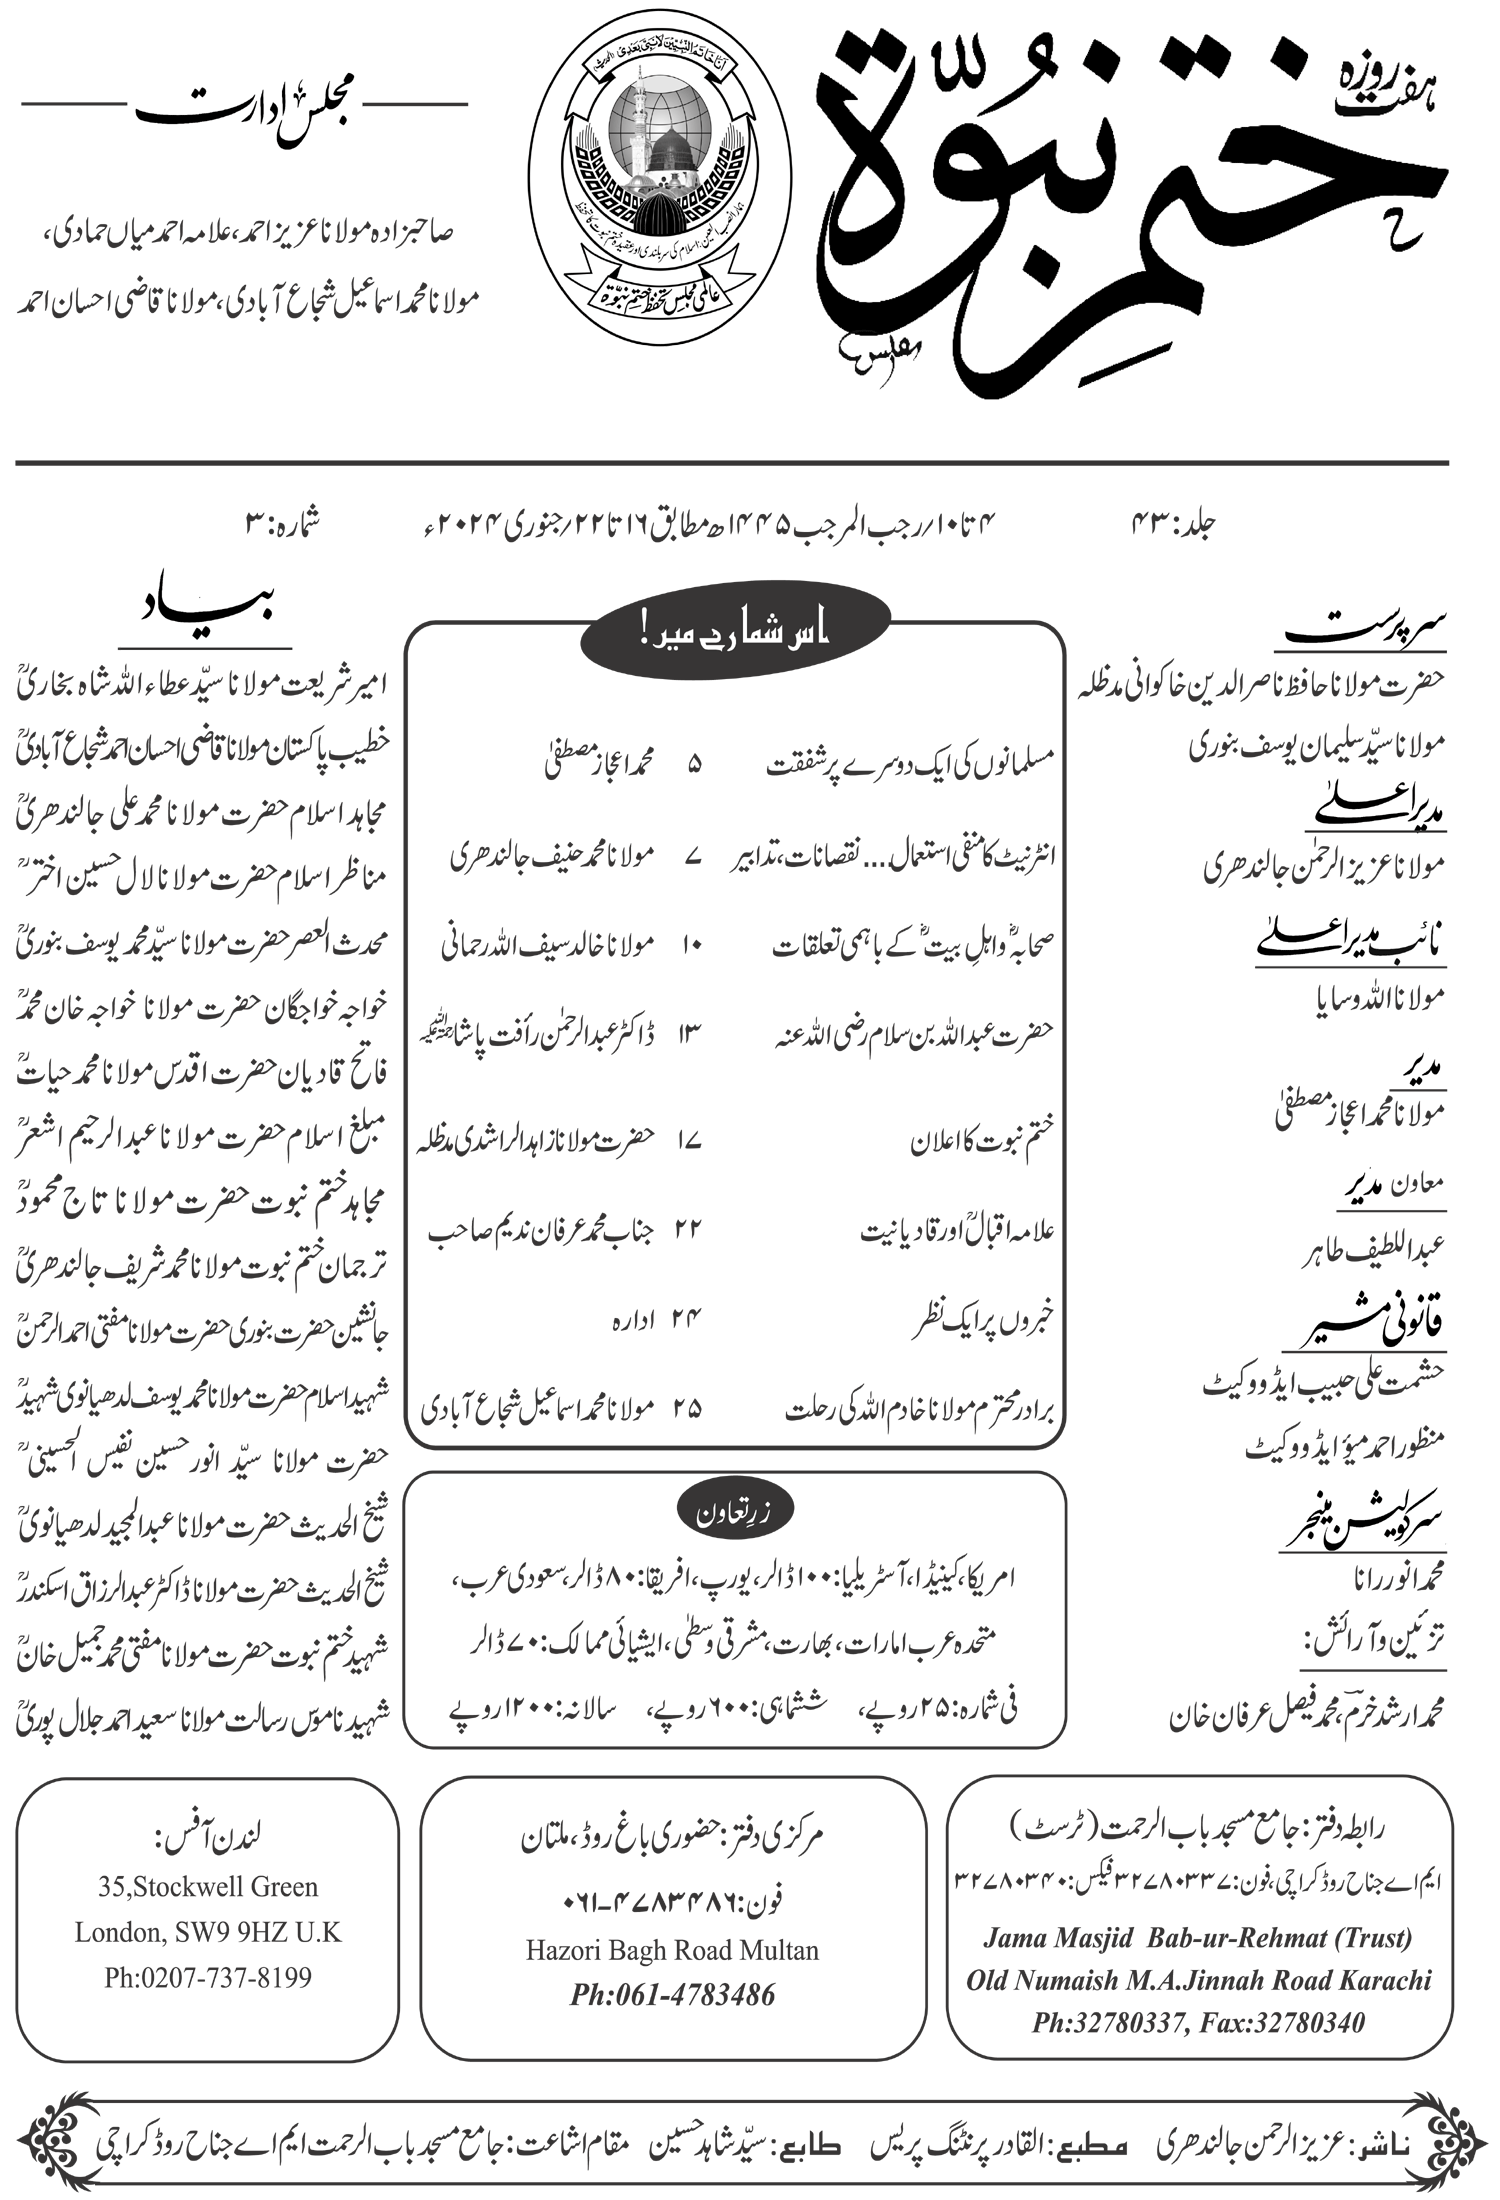 ہفت روزہ
ختم نبوّۃ
مجلس ادارت
صاحبزادہ مولانا عزیز احمد، علامہ احمد میاں حمادی،
مولانا محمد اسماعیل شجاع آبادی، مولانا قاضی احسان احمد
انا خاتم النبیین لا نبی بعدی
عالمی مجلس تحفظ ختم نبوّۃ
جلد: ۴۳
۴ تا ۱۰/رجب المرجب ۱۴۴۵ھ مطابق ۱۶ تا ۲۲/جنوری ۲۰۲۴ء
شمارہ: ۳
سرپرست
حضرت مولانا حافظ ناصر الدین خاکوانی مدظلہ
مولانا سیّد سلیمان یوسف بنوری
مدیر اعلیٰ
مولانا عزیز الرحمٰن جالندھری
نائب مدیر اعلیٰ
مولانا اللہ وسایا
مدیر
مولانا محمد اعجاز مصطفیٰ
معاون مدیر
عبداللطیف طاہر
قانونی مشیر
حشمت علی حبیب ایڈووکیٹ
منظور احمد میؤ ایڈووکیٹ
سرکولیشن منیجر
محمد انور رانا
تزئین و آرائش:
محمد ارشد خرم، محمد فیصل عرفان خان
اس شمارے میں!
مسلمانوں کی ایک دوسرے پر شفقت ۵ محمد اعجاز مصطفیٰ
انٹرنیٹ کا منفی استعمال.... نقصانات، تدابیر ۷ مولانا محمد حنیف جالندھری
صحابہؓ و اہلِ بیتؓ کے باہمی تعلقات ۱۰ مولانا خالد سیف اللہ رحمانی
حضرت عبداللہ بن سلام رضی اللہ عنہ ۱۳ ڈاکٹر عبدالرحمٰن رأفت پاشاؒ
ختم نبوت کا اعلان ۱۷ حضرت مولانا زاہد الراشدی مدظلہ
علامہ اقبالؒ اور قادیانیت ۲۲ جناب محمد عرفان ندیم صاحب
خبروں پر ایک نظر ۲۴ ادارہ
برادر محترم مولانا خادم اللہ کی رحلت ۲۵ مولانا محمد اسماعیل شجاع آبادی
زرِ تعاون
امریکا، کینیڈا، آسٹریلیا: ۱۰۰ ڈالر، یورپ، افریقا: ۸۰ ڈالر، سعودی عرب،
متحدہ عرب امارات، بھارت، مشرقی وسطیٰ، ایشیائی ممالک: ۷۰ ڈالر
فی شمارہ: ۲۵ روپے، ششماہی: ۶۰۰ روپے، سالانہ: ۱۲۰۰ روپے
بیاد
امیر شریعت مولانا سیّد عطاء اللہ شاہ بخاریؒ
خطیب پاکستان مولانا قاضی احسان احمد شجاع آبادیؒ
مجاہد اسلام حضرت مولانا محمد علی جالندھریؒ
مناظر اسلام حضرت مولانا لال حسین اخترؒ
محدث العصر حضرت مولانا سیّد محمد یوسف بنوریؒ
خواجہ خواجگان حضرت مولانا خواجہ خان محمدؒ
فاتح قادیان حضرت اقدس مولانا محمد حیاتؒ
مبلغ اسلام حضرت مولانا عبدالرحیم اشعرؒ
مجاہد ختم نبوت حضرت مولانا تاج محمودؒ
ترجمان ختم نبوت مولانا محمد شریف جالندھریؒ
جانشین حضرت بنوری حضرت مولانا مفتی احمد الرحمنؒ
شہید اسلام حضرت مولانا محمد یوسف لدھیانوی شہیدؒ
حضرت مولانا سیّد انور حسین نفیس الحسینیؒ
شیخ الحدیث حضرت مولانا عبدالمجید لدھیانویؒ
شیخ الحدیث حضرت مولانا ڈاکٹر عبدالرزاق اسکندرؒ
شہید ختم نبوت حضرت مولانا مفتی محمد جمیل خانؒ
شہید ناموس رسالت مولانا سعید احمد جلال پوریؒ
رابطہ دفتر: جامع مسجد باب الرحمت (ٹرسٹ)
ایم اے جناح روڈ کراچی، فون: ۳۲۷۸۰۳۳۷ فیکس: ۳۲۷۸۰۳۴۰
Jama Masjid Bab-ur-Rehmat (Trust)
Old Numaish M.A.Jinnah Road Karachi
Ph:32780337, Fax:32780340
مرکزی دفتر: حضوری باغ روڈ، ملتان
فون: ۰۶۱-۴۷۸۳۴۸۶
Hazori Bagh Road Multan
Ph:061-4783486
لندن آفس:
35,Stockwell Green
London, SW9 9HZ U.K
Ph:0207-737-8199
ناشر: عزیز الرحمن جالندھری مطبع: القادر پرنٹنگ پریس طابع: سیّد شاہد حسین مقام اشاعت: جامع مسجد باب الرحمت ایم اے جناح روڈ کراچی